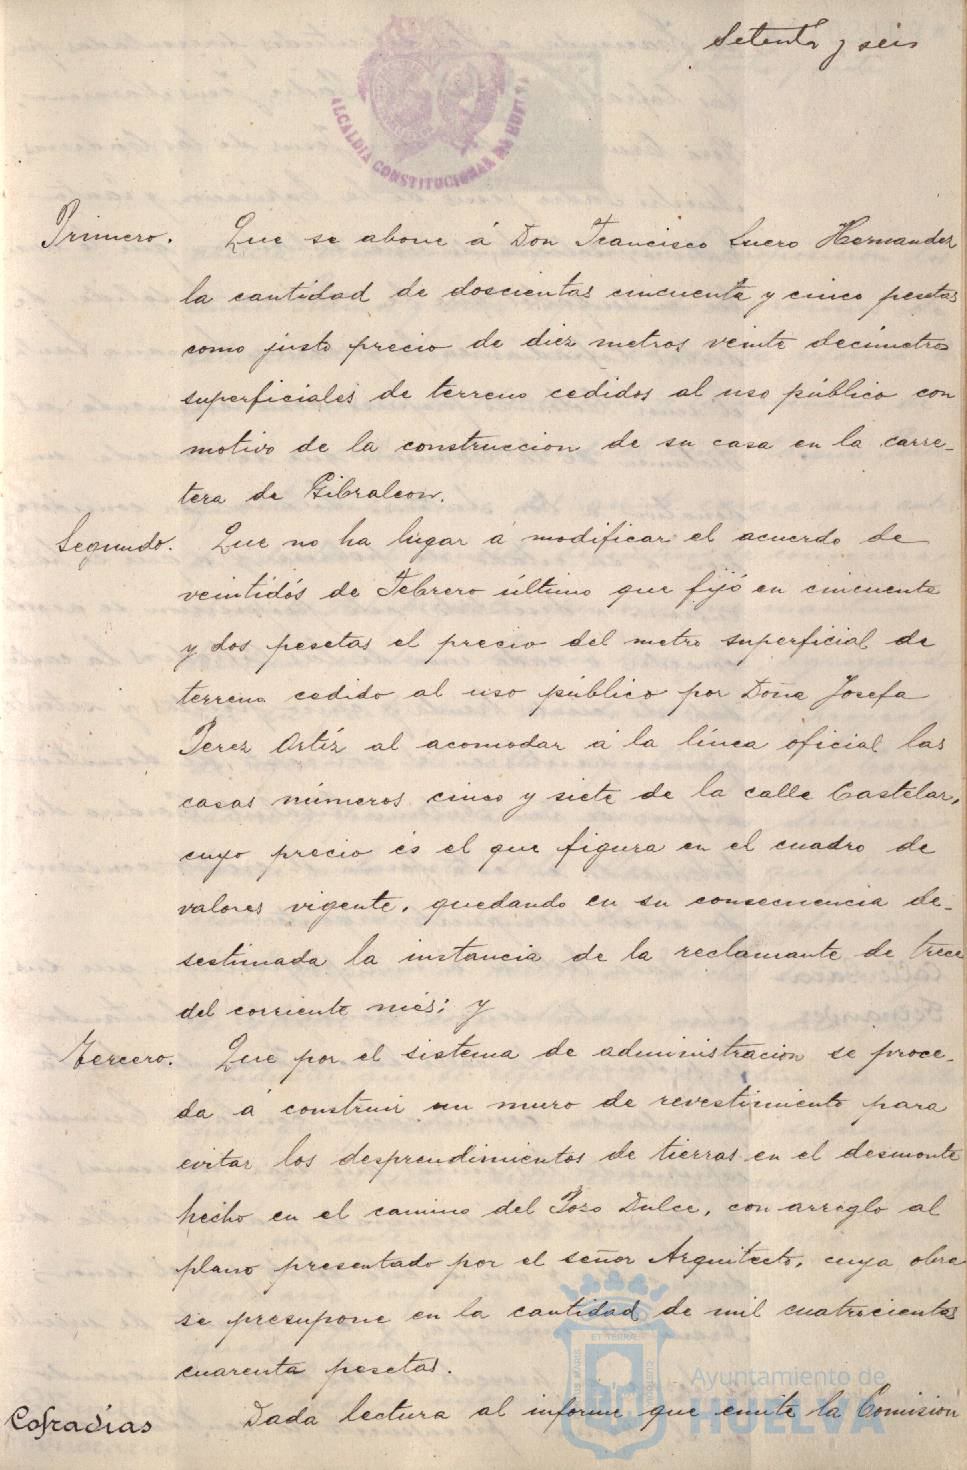 Setenta y seis
ALCALDIA CONSTITUCIONAL DE HUELVA
Primero. Que se abone á Don Francisco Suero Hernandez
la cantidad de doscientas cincuenta y cinco pesetas
como justo precio de diez metros veinte decimetros
superficiales de terreno cedidos al uso público con
motivo de la construccion de su casa en la carre-
tera de Gibraleon.
Segundo. Que no ha lugar á modificar el acuerdo de
veintidós de Febrero último que fijó en cincuenta
y dos pesetas el precio del metro superficial de
terreno cedido al uso público por Doña Josefa
Perez Ortíz al acomodar á la línea oficial las
casas números cinco y siete de la calle Castelar,
cuyo precio és el que figura en el cuadro de
valores vigente, quedando en su consecuencia de-
sestimada la instancia de la reclamante de trece
del corriente més; y
Tercero. Que por el sistema de administracion se proce-
da á construir un muro de revestimiento para
evitar los desprendimientos de tierras en el desmonte
hecho en el camino del Pozo Dulce, con arreglo al
plano presentado por el señor Arquitecto, cuya obra
se presupone en la cantidad de mil cuatrocientas
cuarenta pesetas.
Cofradías Dada lectura al informe que emite la Comision
Ayuntamiento de
HUELVA